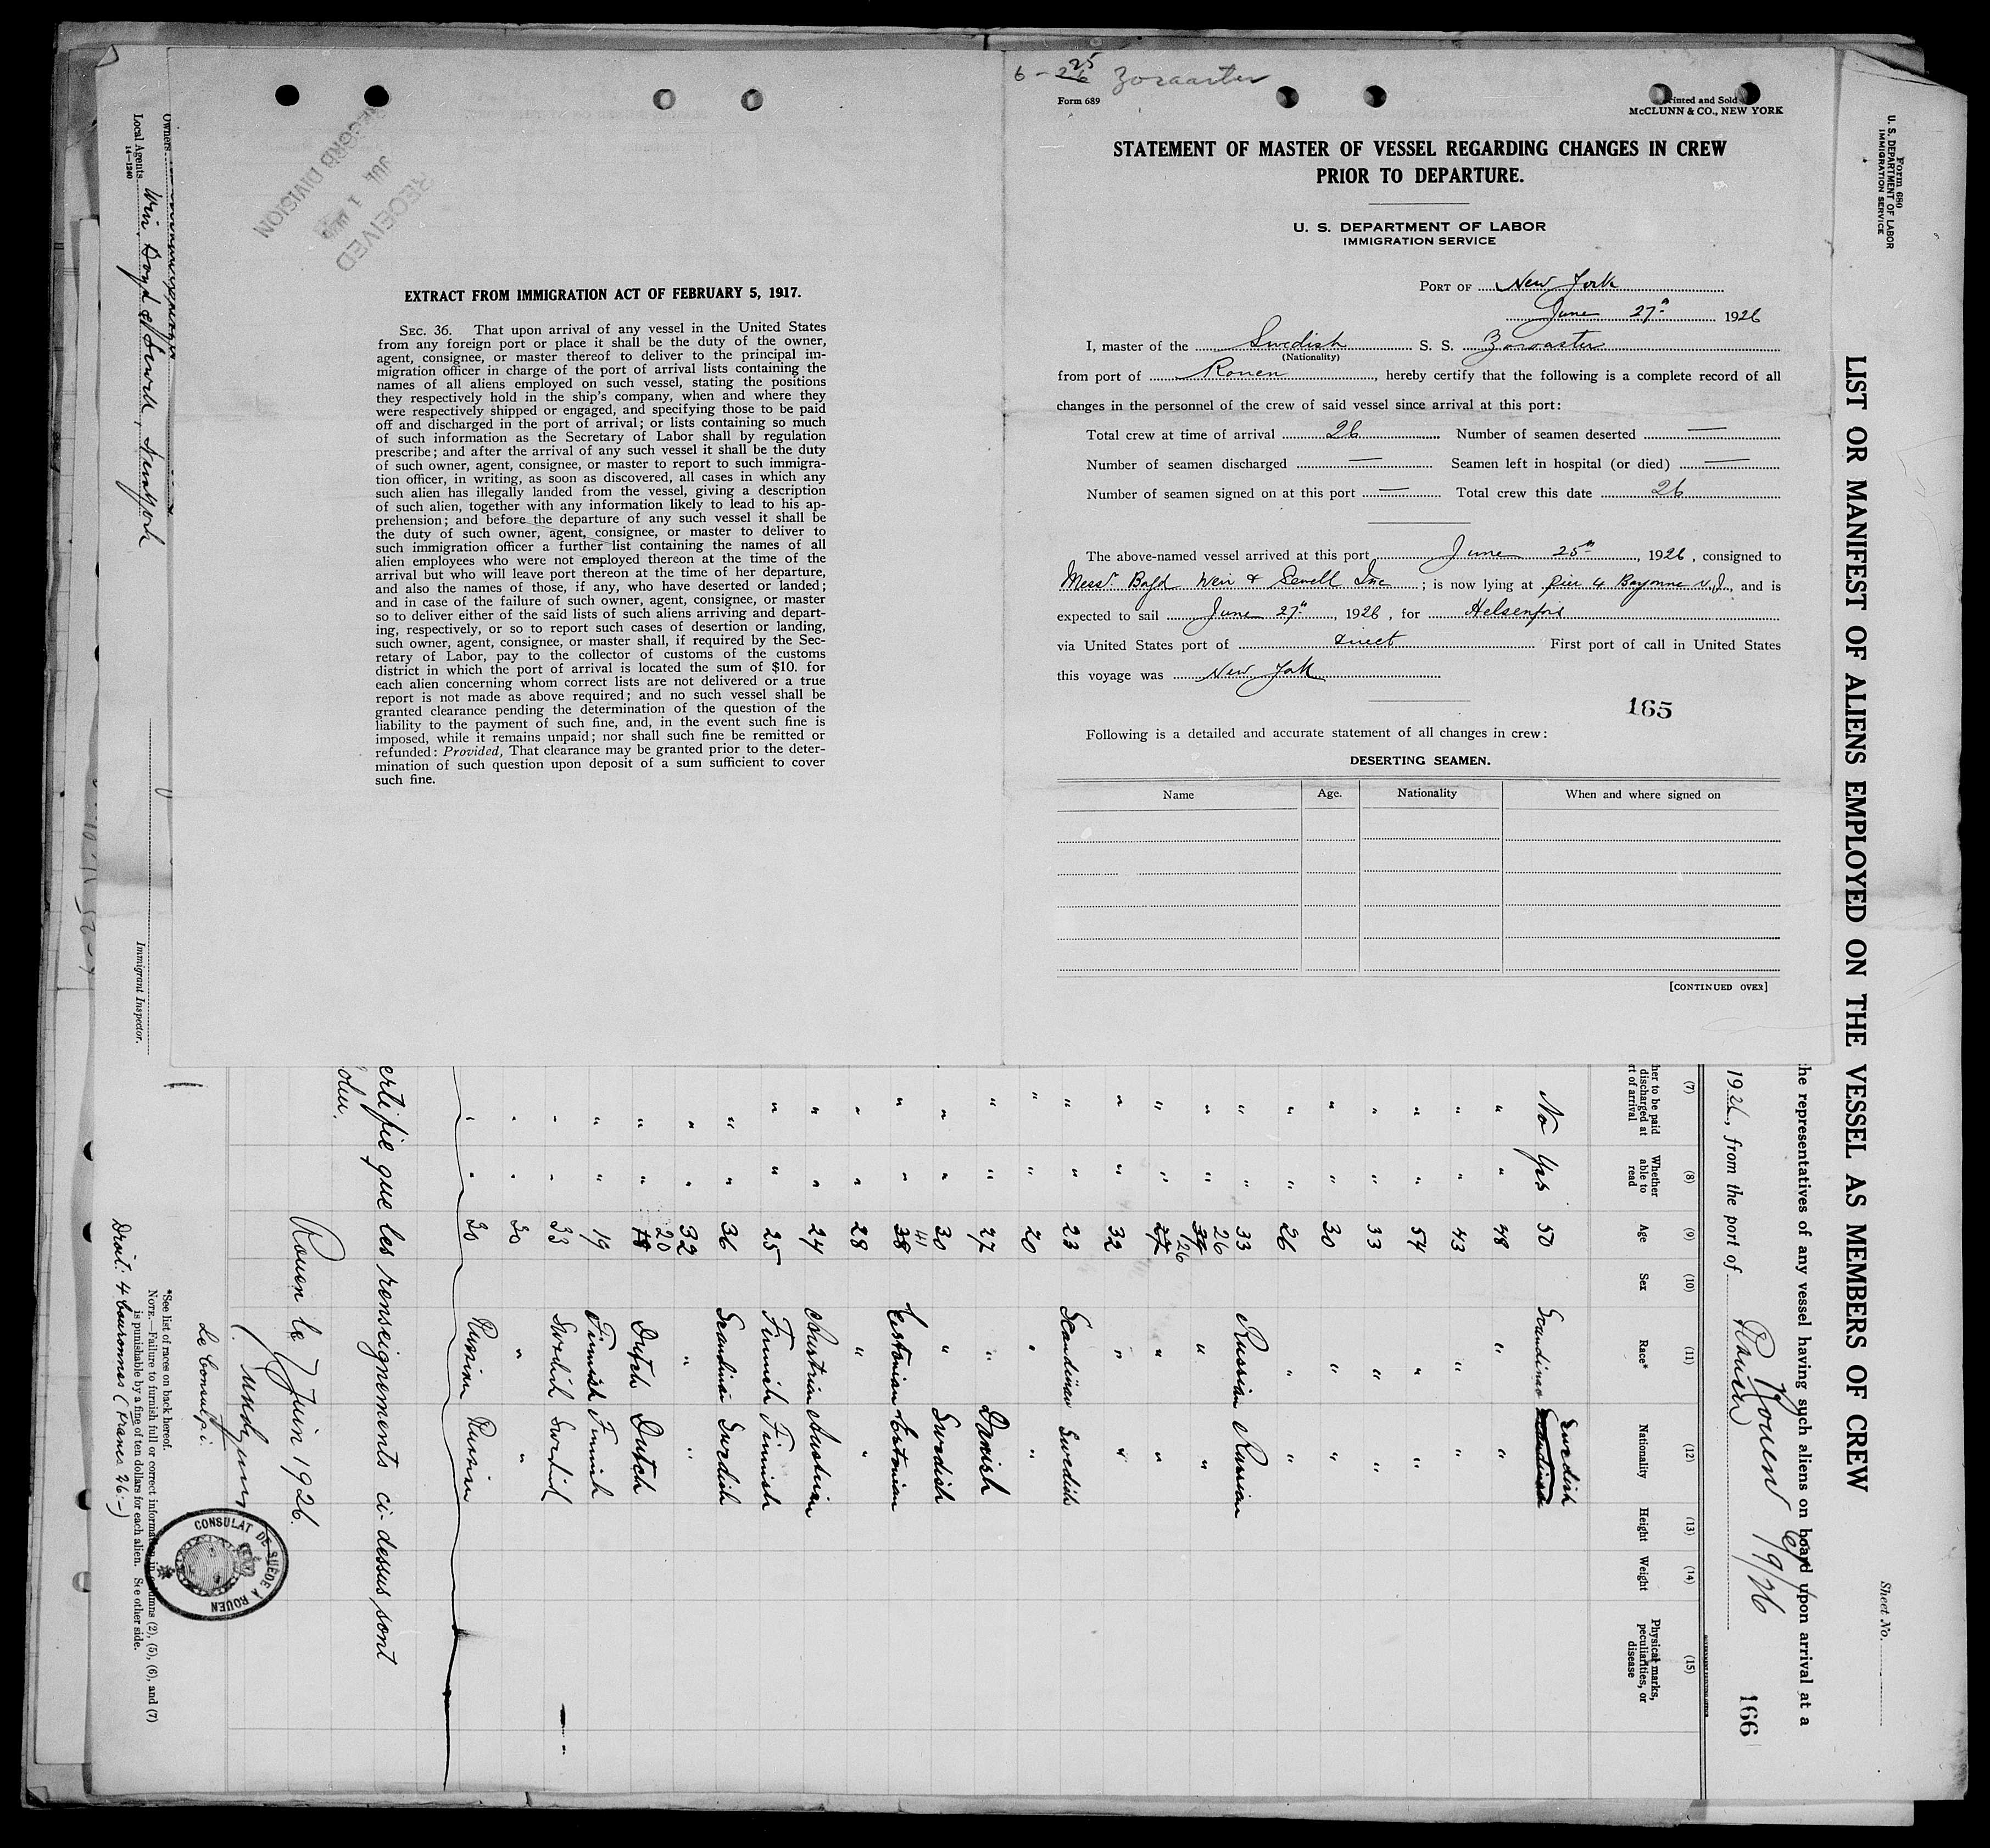 Owners
Local Agents Weir Boyd & Sewell, New York
14—1240
Immigrant Inspector.
RECEIVED
JUL 1
RECORD DIVISION
EXTRACT FROM IMMIGRATION ACT OF FEBRUARY 5, 1917.
SEC. 36. That upon arrival of any vessel in the United States
from any foreign port or place it shall be the duty of the owner,
agent, consignee, or master thereof to deliver to the principal im-
migration officer in charge of the port of arrival lists containing the
names of all aliens employed on such vessel, stating the positions
they respectively hold in the ship's company, when and where they
were respectively shipped or engaged, and specifying those to be paid
off and discharged in the port of arrival; or lists containing so much
of such information as the Secretary of Labor shall by regulation
prescribe; and after the arrival of any such vessel it shall be the duty
of such owner, agent, consignee, or master to report to such immigra-
tion officer, in writing, as soon as discovered, all cases in which any
such alien has illegally landed from the vessel, giving a description
of such alien, together with any information likely to lead to his ap-
prehension; and before the departure of any such vessel it shall be
the duty of such owner, agent, consignee, or master to deliver to
such immigration officer a further list containing the names of all
alien employees who were not employed thereon at the time of the
arrival but who will leave port thereon at the time of her departure,
and also the names of those, if any, who have deserted or landed;
and in case of the failure of such owner, agent, consignee, or master
so to deliver either of the said lists of such aliens arriving and depart-
ing, respectively, or so to report such cases of desertion or landing,
such owner, agent, consignee, or master shall, if required by the Sec-
retary of Labor, pay to the collector of customs of the customs
district in which the port of arrival is located the sum of $10. for
each alien concerning whom correct lists are not delivered or a true
report is not made as above required; and no such vessel shall be
granted clearance pending the determination of the question of the
liability to the payment of such fine, and, in the event such fine is
imposed, while it remains unpaid; nor shall such fine be remitted or
refunded: Provided, That clearance may be granted prior to the deter-
mination of such question upon deposit of a sum sufficient to cover
such fine.
6 - 26 25 Zoroaster
Form 689
Printed and Sold
McCLUNN & CO., NEW YORK
STATEMENT OF MASTER OF VESSEL REGARDING CHANGES IN CREW
PRIOR TO DEPARTURE.
U. S. DEPARTMENT OF LABOR
IMMIGRATION SERVICE
PORT OF New York
June 27th 1926
I, master of the Swedish S. S. Zoroaster
(Nationality)
from port of Rouen, hereby certify that the following is a complete record of all
changes in the personnel of the crew of said vessel since arrival at this port:
Total crew at time of arrival 26 Number of seamen deserted —
Number of seamen discharged — Seamen left in hospital (or died) —
Number of seamen signed on at this port — Total crew this date 26
The above-named vessel arrived at this port June 25th, 1926, consigned to
Messr. Boyd Weir & Sewell Inc; is now lying at pier 4 Bayonne N.J., and is
expected to sail June 27th, 1926, for Helsenfors
via United States port of direct First port of call in United States
this voyage was New York
165
Following is a detailed and accurate statement of all changes in crew:
DESERTING SEAMEN.
Name Age. Nationality When and where signed on
[CONTINUED OVER]
Form 680
U. S. DEPARTMENT OF LABOR
IMMIGRATION SERVICE
LIST OR MANIFEST OF ALIENS EMPLOYED ON THE VESSEL AS MEMBERS OF CREW
Sheet No.
he representatives of any vessel having such aliens on board upon arrival at a
1926, from the port of Rouen
Rouen 19/26
166
(7) (8) (9) (10) (11) (12) (13) (14) (15)
her to be paid discharged at rt of arrival
Whether able to read
Age
Sex
Race*
Nationality
Height
Weight
Physical marks, peculiarities, or disease
No Yes 50 Scandinav Swedish
" " 48 " "
" " 43 " "
" " 54 " "
" " 33 " "
" " 30 " "
" " 26 " "
" " 33 Russian Russian
" " 26 " "
" " 27 26 " "
" " 32 " "
" " 23 Scandinav Swedish
" " 20 " "
" " 27 " Danish
" " 30 " Swedish
" " 38 41 Estonian Estonian
" " 28 " "
" " 24 Austrian Austrian
" " 25 Finnish Finnish
" " 36 Scandinav Swedish
" " 32 " "
" " 18 20 Dutch Dutch
" " 19 Finnish Finnish
" " 33 Swedish Swedish
" " 30 " "
" " 30 Russian Russian
ertifie que les renseignements ci-dessus sont
Rouen le 7 Juin 1926.
Le Consul pi.
CONSULAT DE SUÈDE A ROUEN
*See list of races on back hereof.
NOTE.—Failure to furnish full or correct information in columns (2), (5), (6), and (7)
is punishable by a fine of ten dollars for each alien. See other side.
Droit: 4 couronnes (francs 26:-)